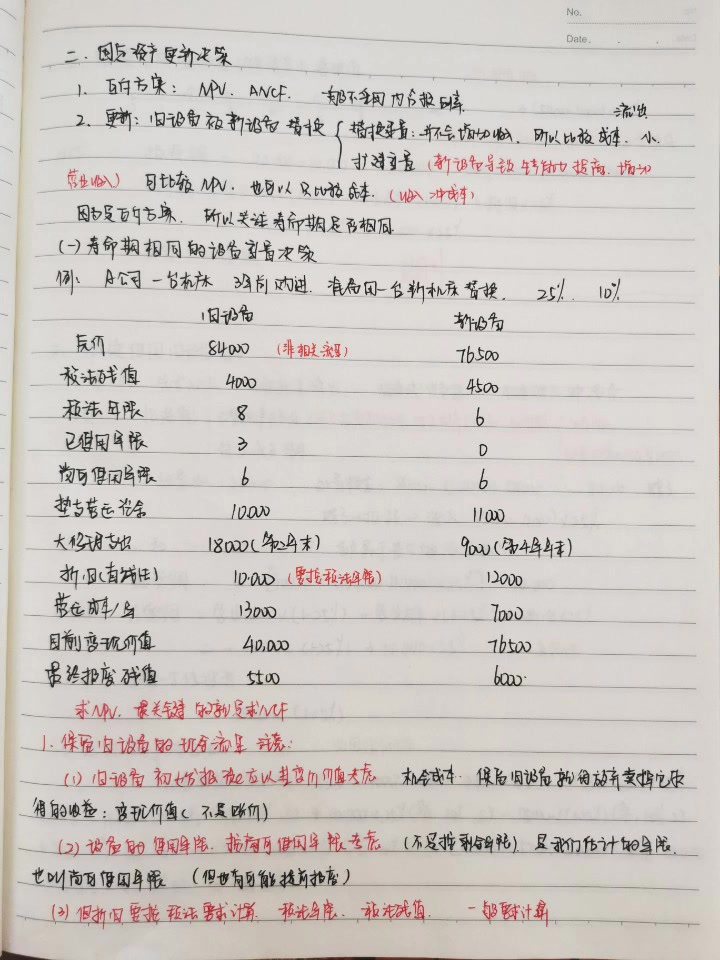 No.
Date.
二. 固定资产更新决策
1. 互斥方案: NPV. ANCF. 一般不采用内含报酬率.
2. 更新: 旧设备被新设备替换 { 替换重置: 并不会增加收入, 所以比较成本. 小. 流出
扩建重置 (新设备导致生产能力提高. 增加
营业收入) 可比较NPV. 也可以只比较成本. (收入冲成本)
因为是互斥方案. 所以关注寿命期是否相同
(一) 寿命期相同的设备重置决策
例: A公司一台机床 3年前购进. 准备用一台新机床替换. 25%. 10%
旧设备 新设备
原价 84000 (非相关流量) 76500
税法残值 4000 4500
税法年限 8 6
已使用年限 3 0
尚可使用年限 6 6
垫支营运资金 10000 11000
大修理支出 18000 (第2年末) 9000 (第4年年末)
折旧(直线法) 10.000 (要按税法年限) 12000
营运成本/年 13000 7000
目前变现价值 40,000 76500
最终报废残值 5500 6000.
求NPV. 最关键的就是求NCF
1. 保留旧设备的现金流量 注意:
(1) 旧设备初始投资额应以其变价价值考虑 机会成本. 保留旧设备就得放弃卖掉它取
得的收益: 变现价值 (不是账价)
(2) 设备的使用年限. 按尚可使用年限考虑 (不是按剩余年限) 是我们估计的年限.
也叫尚可使用年限 (但也有可能提前报废)
(3) 但折旧要按税法要求计算. 税法年限. 税法残值. 一般要求计算